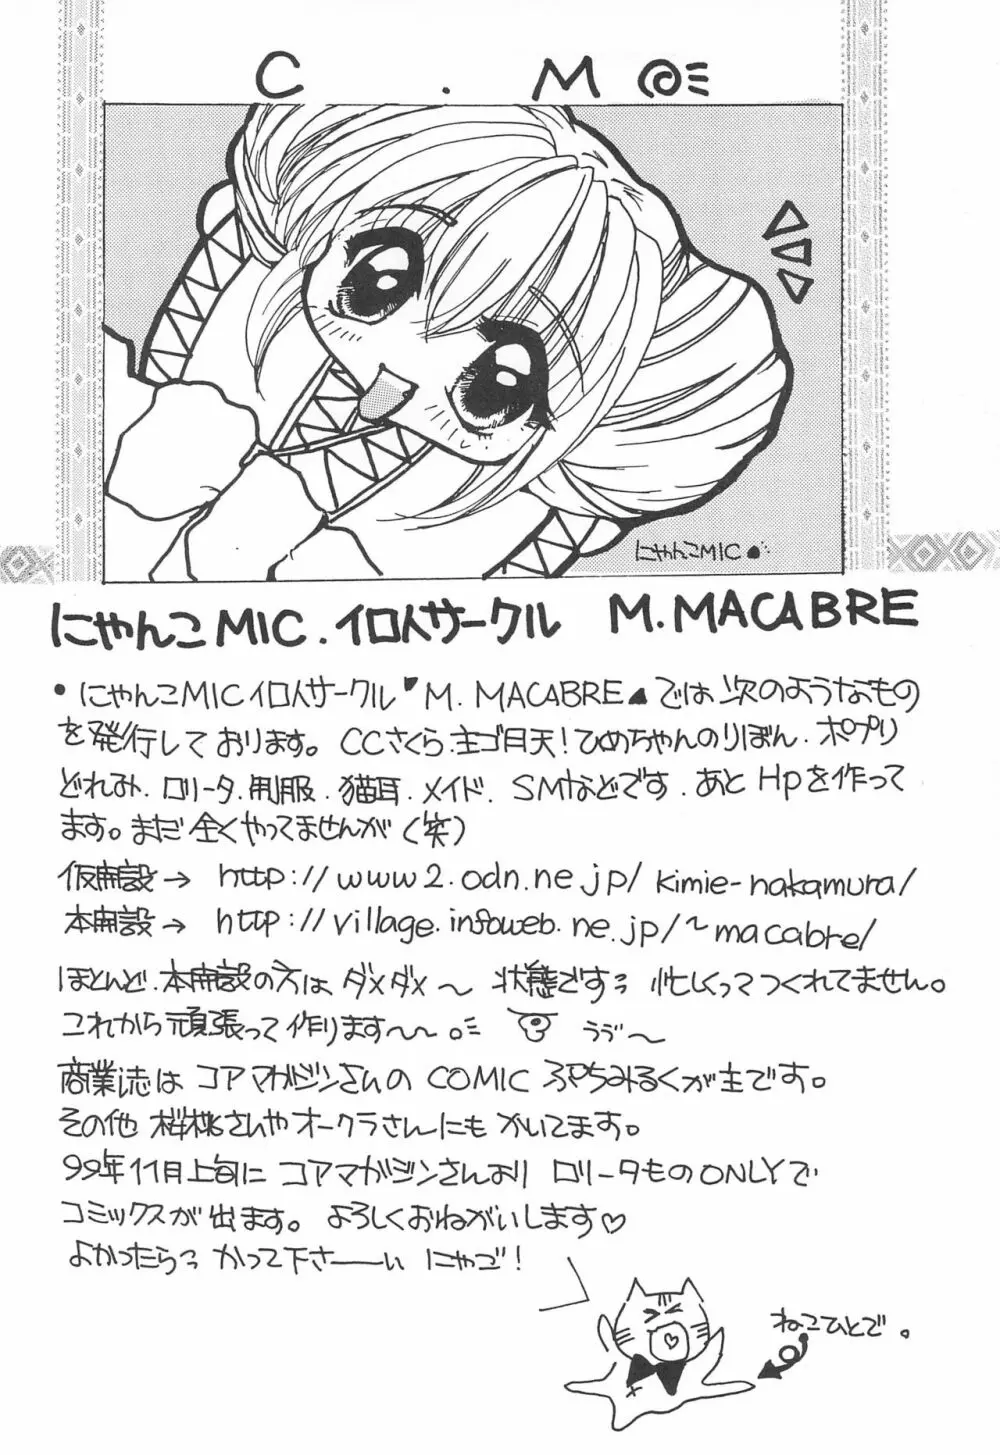 C.M
にゃんこMIC
にゃんこMIC.イロ人サークル M.MACABRE
・にゃんこMICイロ人サークル M.MACABREでは次のようなもの
を発行しております。CCさくら.主ゴ月天!ひめちゃんのりぼん.ポプリ
どれみ.ロリータ.制服.猫耳.メイド.SMなどです.あとHpを作って
ます。まだ全くやってませんが(笑)
仮開設→ http://www2.odn.ne.jp/kimie-nakamura/
本開設→ http://village.infoweb.ne.jp/~macabre/
ほとんど.本開設の方はダメダメ〜 状態ですう 忙しくってつくれてません。
これから頑張って作ります〜〜 うう゛〜
商業誌はコアマガジンさんのCOMICぷちみるくが主です。
その他 桜桃さんやオークラさんにもかいてます。
99年11月上旬に コアマガジンさんより ロリータものONLYで
コミックスが出ます。よろしくおねがいします♡
よかったらっ かって下さーーい にゃご!
ねこひとで。